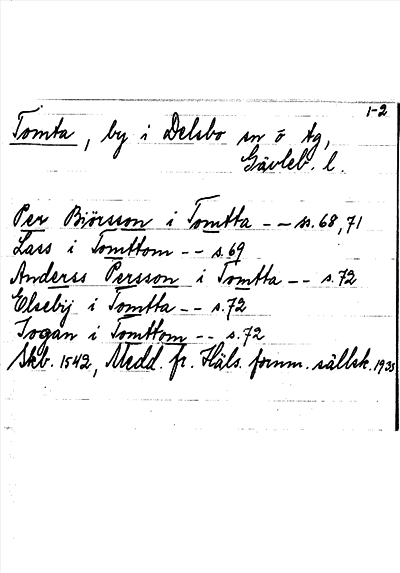 1-2
Tomta, by i Delsbo sn o tg,
Gävleb. l.
Per Biörsson i Tomtta -- s. 68, 71
Lass i Tomttom -- s. 69
Anderss Persson i Tomtta -- s. 72
Elsebij i Tomtta -- s. 72
Jogan i Tomttom -- s. 72
Skb. 1542, Medd. fr. Häls. fornm. sällsk. 1935